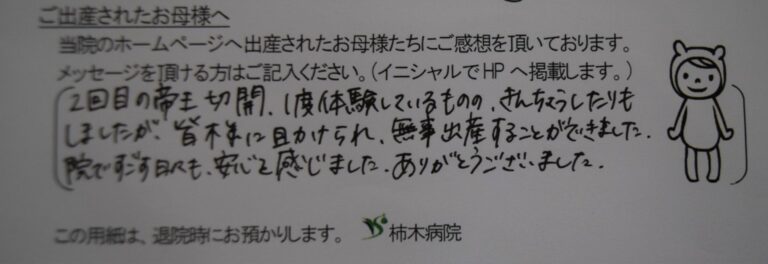 ご出産されたお母様へ
当院のホームページへ出産されたお母様たちにご感想を頂いております。
メッセージを頂ける方はご記入ください。(イニシャルでHPへ掲載します。)
2回目の帝王切開、1度体験しているものの、きんちょうしたりも
しましたが、皆様に助けられ、無事出産することができました。
院ですごす日々も、安心と感じました。ありがとうございました。
この用紙は、退院時にお預かりします。 柿木病院